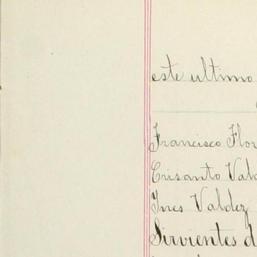 este ultimo
Francisco Flor
Crisanto Vald
Ines Valdez
Sirvientes d